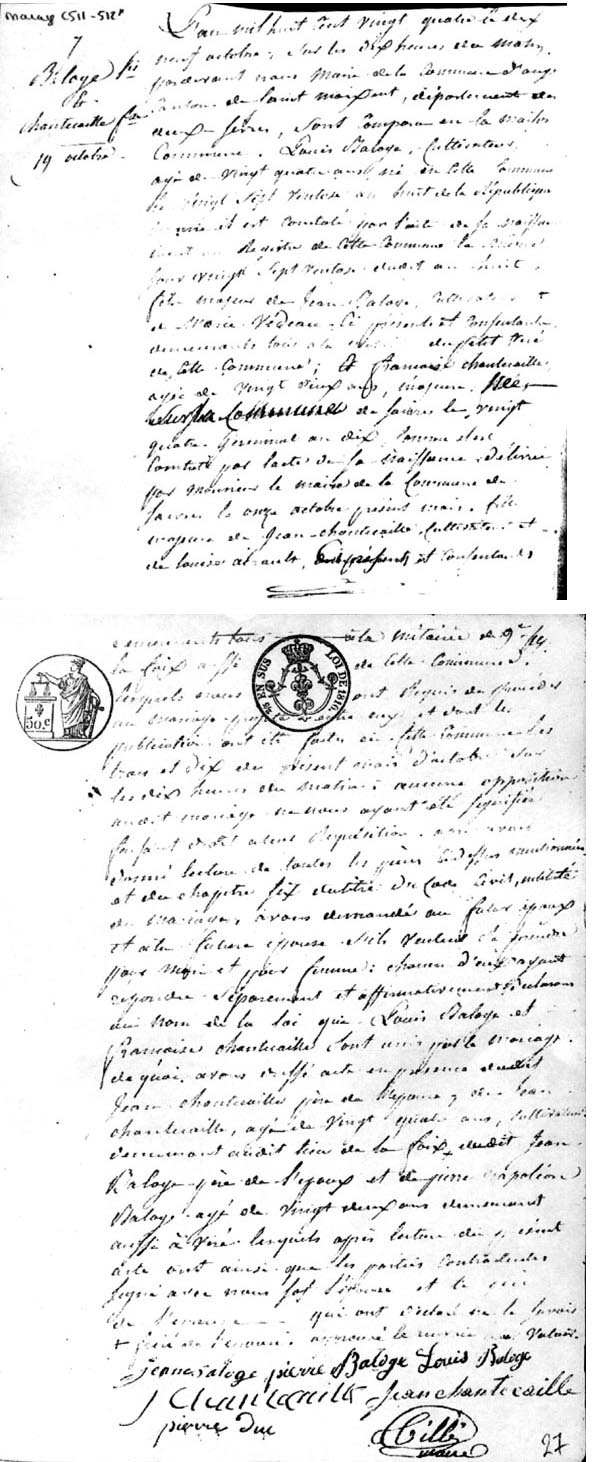 7
Baloge fils
&
Chantecaille fille
19 octobre
L'an mil huit cent vingt quatre le dix
neuf octobre, sur les dix heures du matin,
pardevant nous Maire de la Commune d'augé
Canton de Saint maixent, département des
deux Sèvres, sont comparu en la maison
Commune, Louis Baloge, Cultivateur,
agé de vingt quatre ans, né en cette Commune
le vingt Sept Ventose an huit de la République
il est constaté par l'acte de sa naissance
Registre de cette Commune le même
jour vingt Sept Ventose dudit an huit,
fils majeur de Jean Baloge, Cultivateur
et de Marie Vedeau ici présents et consentants
demeurants tous du petit Veré
de cette Commune; Et françoise chantecaille
agée de vingt deux ans, majeure, Née
Commune de saivres le vingt
quatre Germinal an dix, comme il est
constaté par l'acte de sa naissance délivré
par monsieur le maire de la Commune de
saivres le onze octobre présent mois, fille
majeure de Jean chantecaille, Cultivateur et
de louise et consentants
demeurants tous à la métairie de
la foix aussi de cette Commune.
Lesquels nous ont Requis de procéder
au mariage projetté entre eux et dont les
publications ont été faites en cette Commune les
trois et dix du présent mois d'octobre sur
les dix heures du matin; aucune opposition
audit mariage ne nous ayant été signifiée
faisant droit à leur Réquisition, après avoir
donné lecture de toutes les pièces ci dessus mentionnées
et du chapitre six du titre du Code Civil, intitulé
du Mariage, avons demandé au futur époux
et à la future épouse s'ils veulent se prendre
pour mari et pour femme; chacun d'eux ayant
répondu Séparément et affirmativement, Déclarons
au nom de la loi que Louis Baloge et
Françoise chantecaille sont unis par le mariage.
de quoi avons dressé acte en présence dudit
Jean chantecaille père de l'épouse, de Jean
chantecaille, agé de vingt quatre ans, cultivateur
demeurant audit lieu de la foix, dudit Jean
Baloge père de l'époux et de pierre napoléon
Baloge agé de vingt deux ans demeurant
aussi à Veré lesquels après lecture du présent
acte ont ainsi que les parties contractantes
signé avec nous sauf l'épouse et la mère
de l'épouse qui ont déclaré ne le savoir
jean Baloge pierre Baloge Louis Baloge
J Chantecaille Jean chantecaille
pierre
Billi
maire
27
50.c
EN SUS
LOI DE 1816.